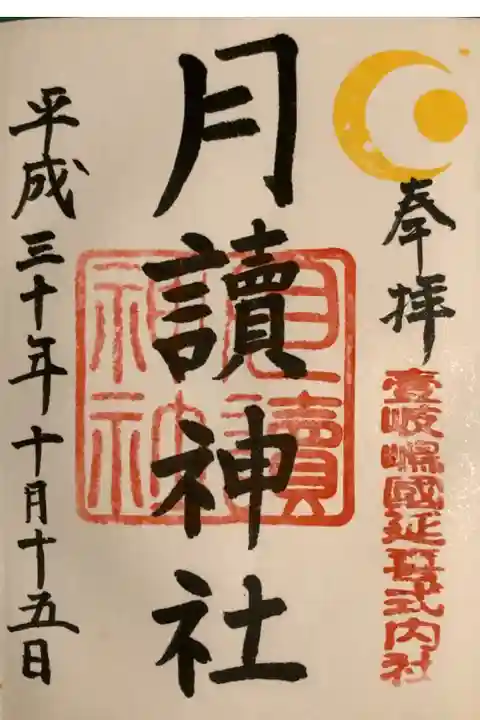 奉拝
壹岐嶋國延喜式内社
月讀神社
月讀神社
平成三十年十月十五日